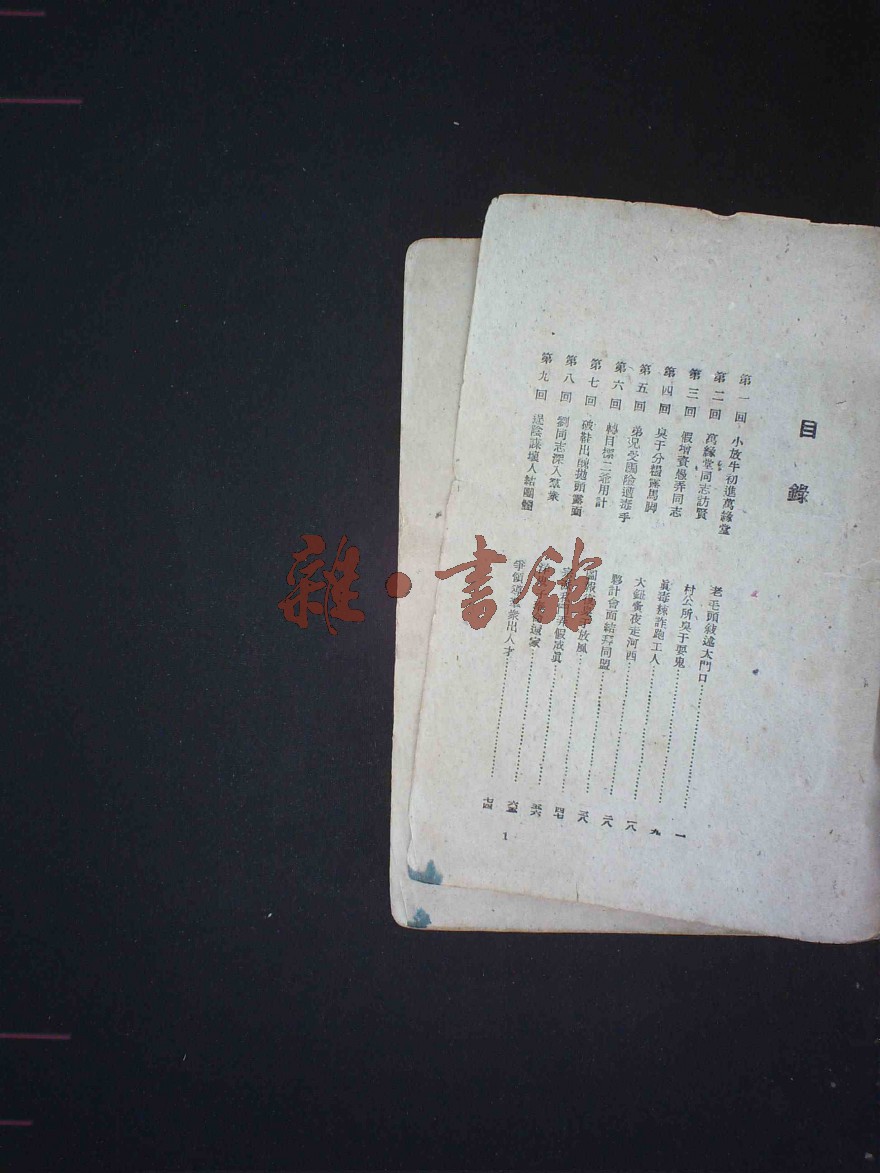 目錄
第一回 小放牛初進萬緣堂 老毛頭敍述大門口 一
第二回 萬緣堂同志訪賢 村公所臭于耍鬼 九
第三回 假增資愚弄同志 眞毒辣詐跑工人 一八
第四回 臭于分糧露馬脚 大鎚黃夜走河西 二八
第五回 弟兄受國險遭毒手 夥計會面結拜同盟 三八
第六回 轉目標二爺用計 放風 四七
第七回 破鞋出醜拋頭露面 弄假成眞 五六
第八回 劉同志深入羣衆 還家 六五
第九回 逞陰謀壞人結團體 爭領導羣衆出人才 七四
1
雜·書館